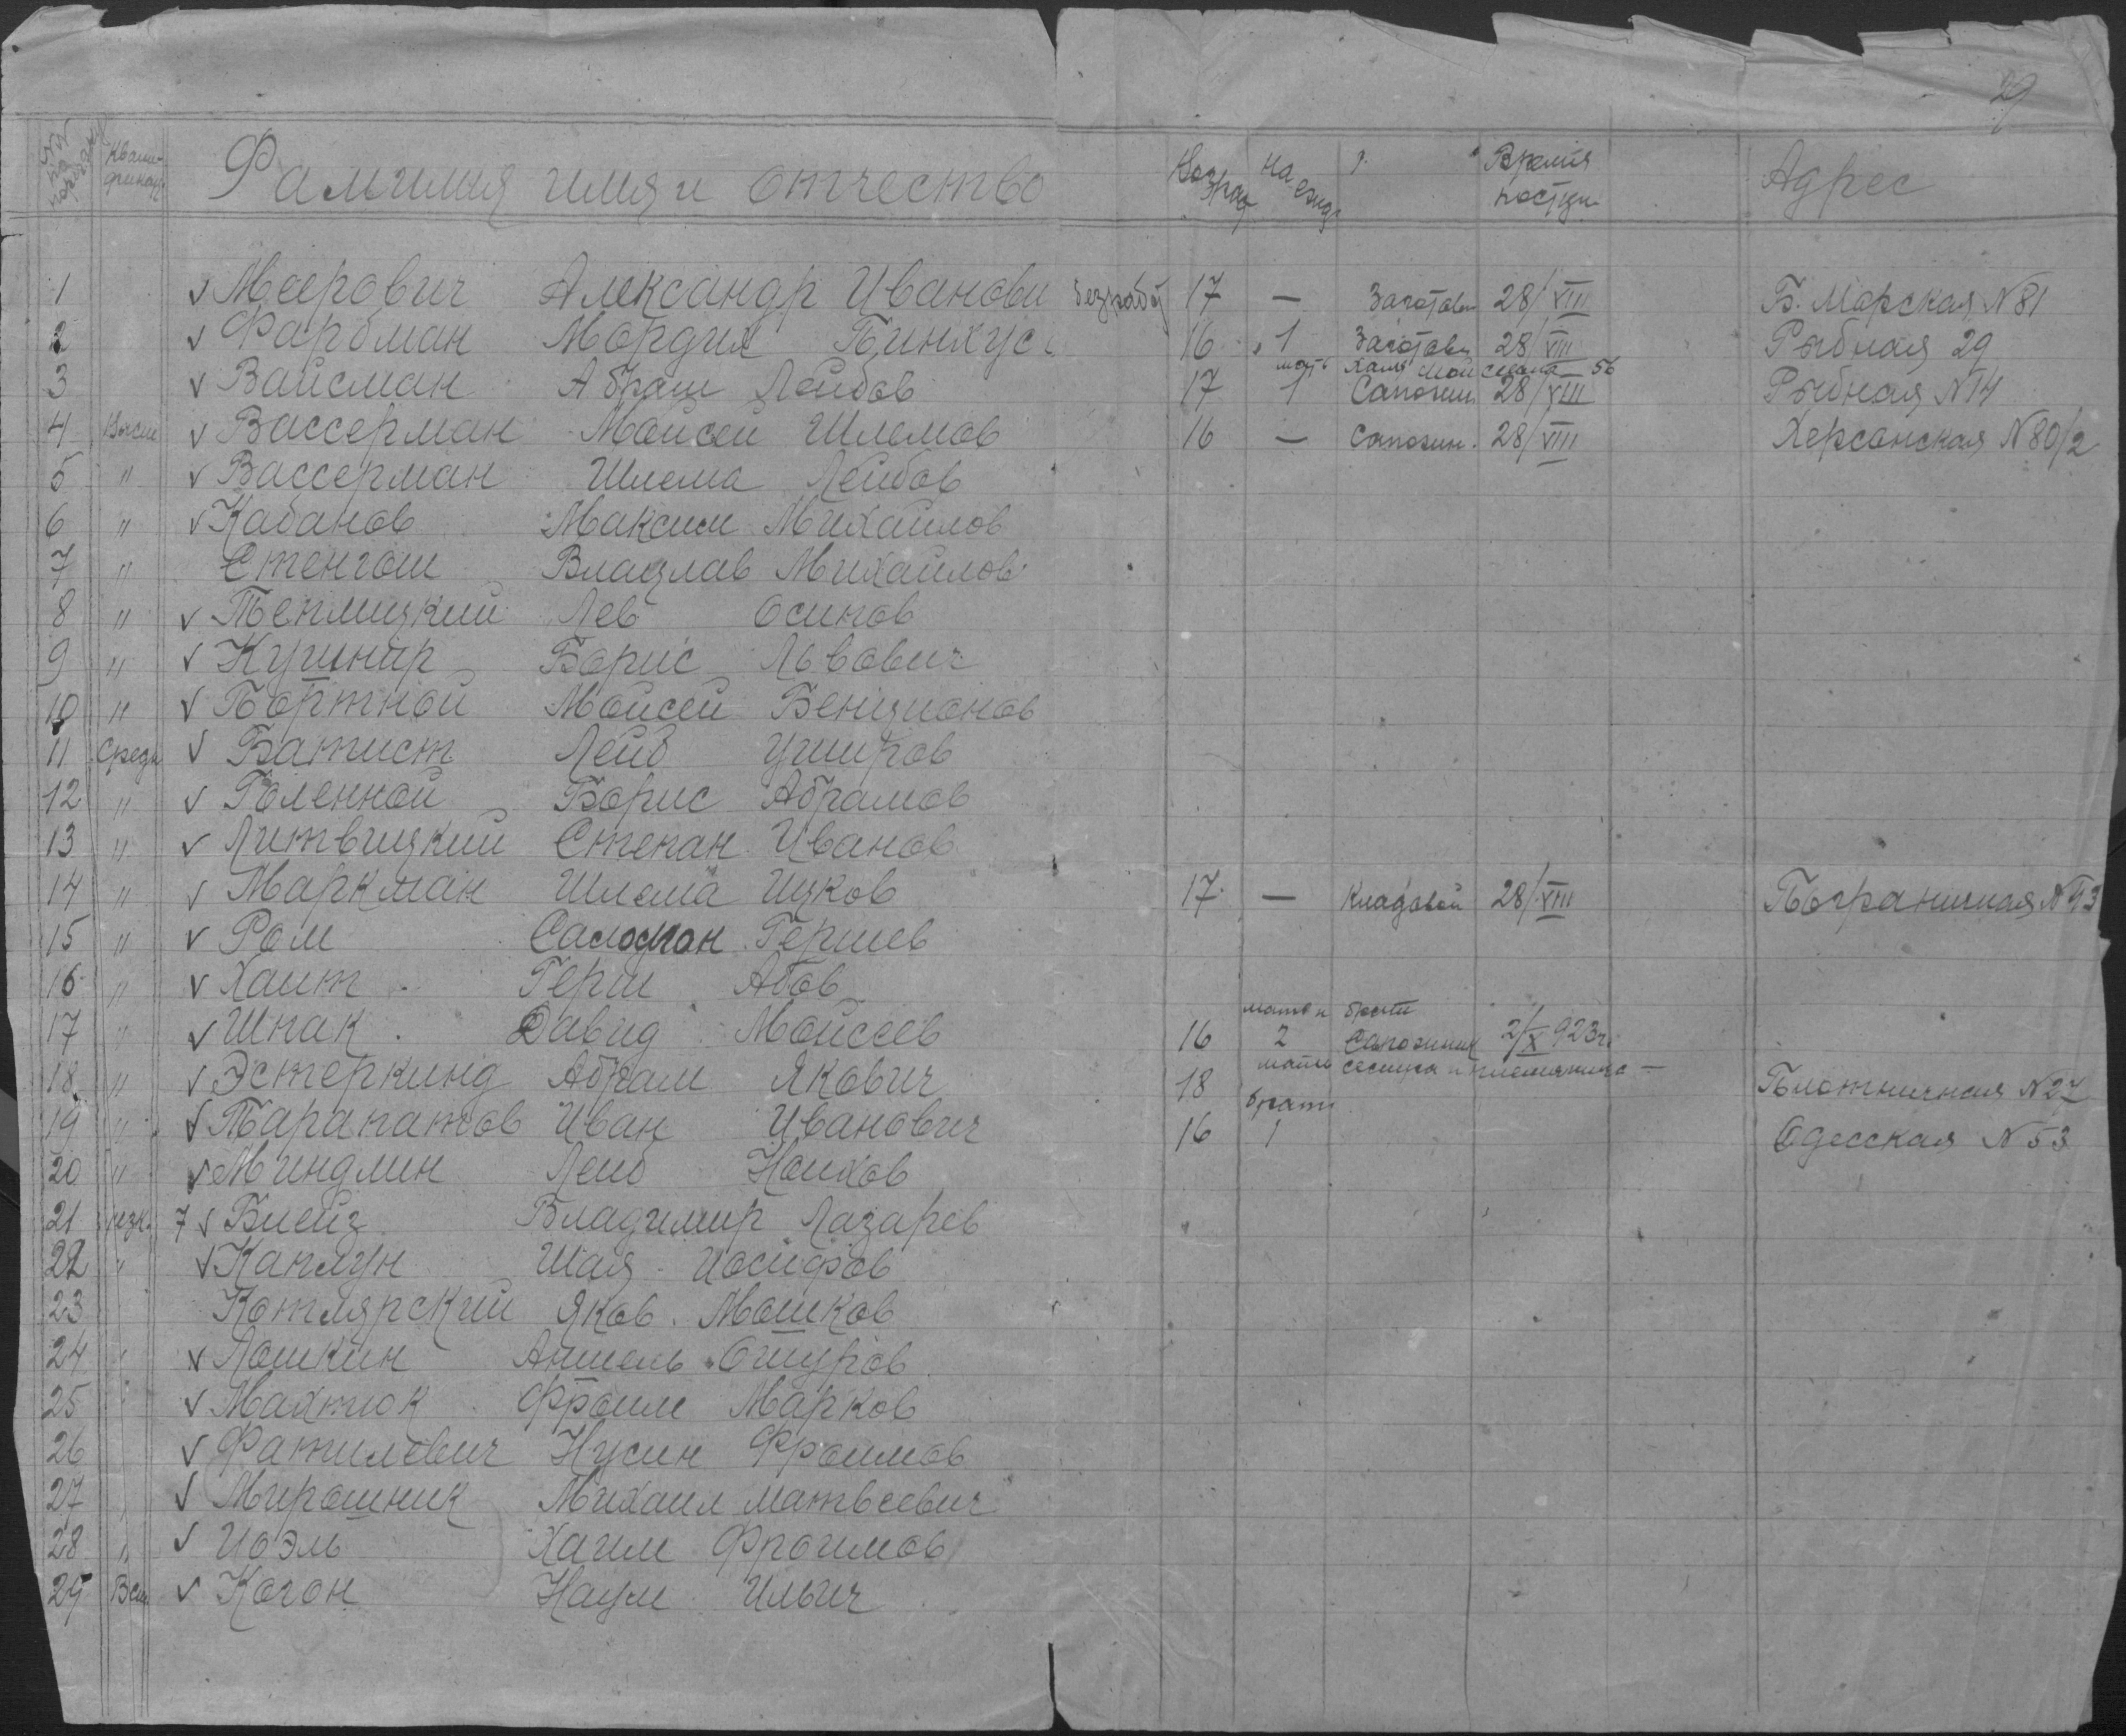 29
№№ по порядку Квали-фикац. Фамилия имя и отчество Возраст На ежд. Время поступ. Адрес
1 ✓ Меерович Александр Иванови безработ 17 — Заготовщ 28/VIII Б. Морская № 81
2 ✓ Фарбман Мордух Пинхус. 16 1 Заготовщ 28/VIII Рыбная 29
мать Хая Мойсеевна 56
3 ✓ Вайсман Абраш Лейбов 17 1 Сапожн 28/VIII Рыбная № 14
4 Высш ✓ Вассерман Мойсей Шлемов 16 — Сапожн. 28/VIII Херсонская № 80/2
5 " ✓ Вассерман Шлема Лейбов
6 " ✓ Кабанов Максим Михайлов
7 " Стенгош Владлав Михайлов
8 " ✓ Теплицкий Лев Осипов
9 " ✓ Кушнир Борис Львович
10 " ✓ Портной Мойсей Бенционов
11 Средн ✓ Батист Лейб Ушеров
12 " ✓ Голенной Борис Абрамов
13 " ✓ Литвицкий Степан Иванов
14 " ✓ Маркман Шлема Ицков 17 — Кладовой 28/VIII Пограничная № 93
15 " ✓ Ром Саломон Гершев
16 " ✓ Хаит Герш Абов
мать и братья
17 " ✓ Шпак Давид Мойсеев 16 2 Сапожник 2/X 923г.
мать сестра и племянница —
18 " ✓ Эстеркинд Абрам Якович 18 Плотничная № 27
брат
19 " ✓ Тарапатов Иван Иванович 16 1 Одесская № 53
20 " ✓ Миндлин Лейб Нохов
21 низк. 7 ✓ Биейз Владимир Лазарев
22 " ✓ Каплун Шая Иосифов
23 Котлярский Яков Мошков
24 " ✓ Лошкин Аншель Ошеров
25 " ✓ Махтюк Фроим Марков
26 ✓ Фатилевич Нусин Фроимов
27 " ✓ Мирошник Михаил Матвеевич
28 " ✓ Иоэль Хаим Фроимов
29 Всш ✓ Когон Наум Ильич